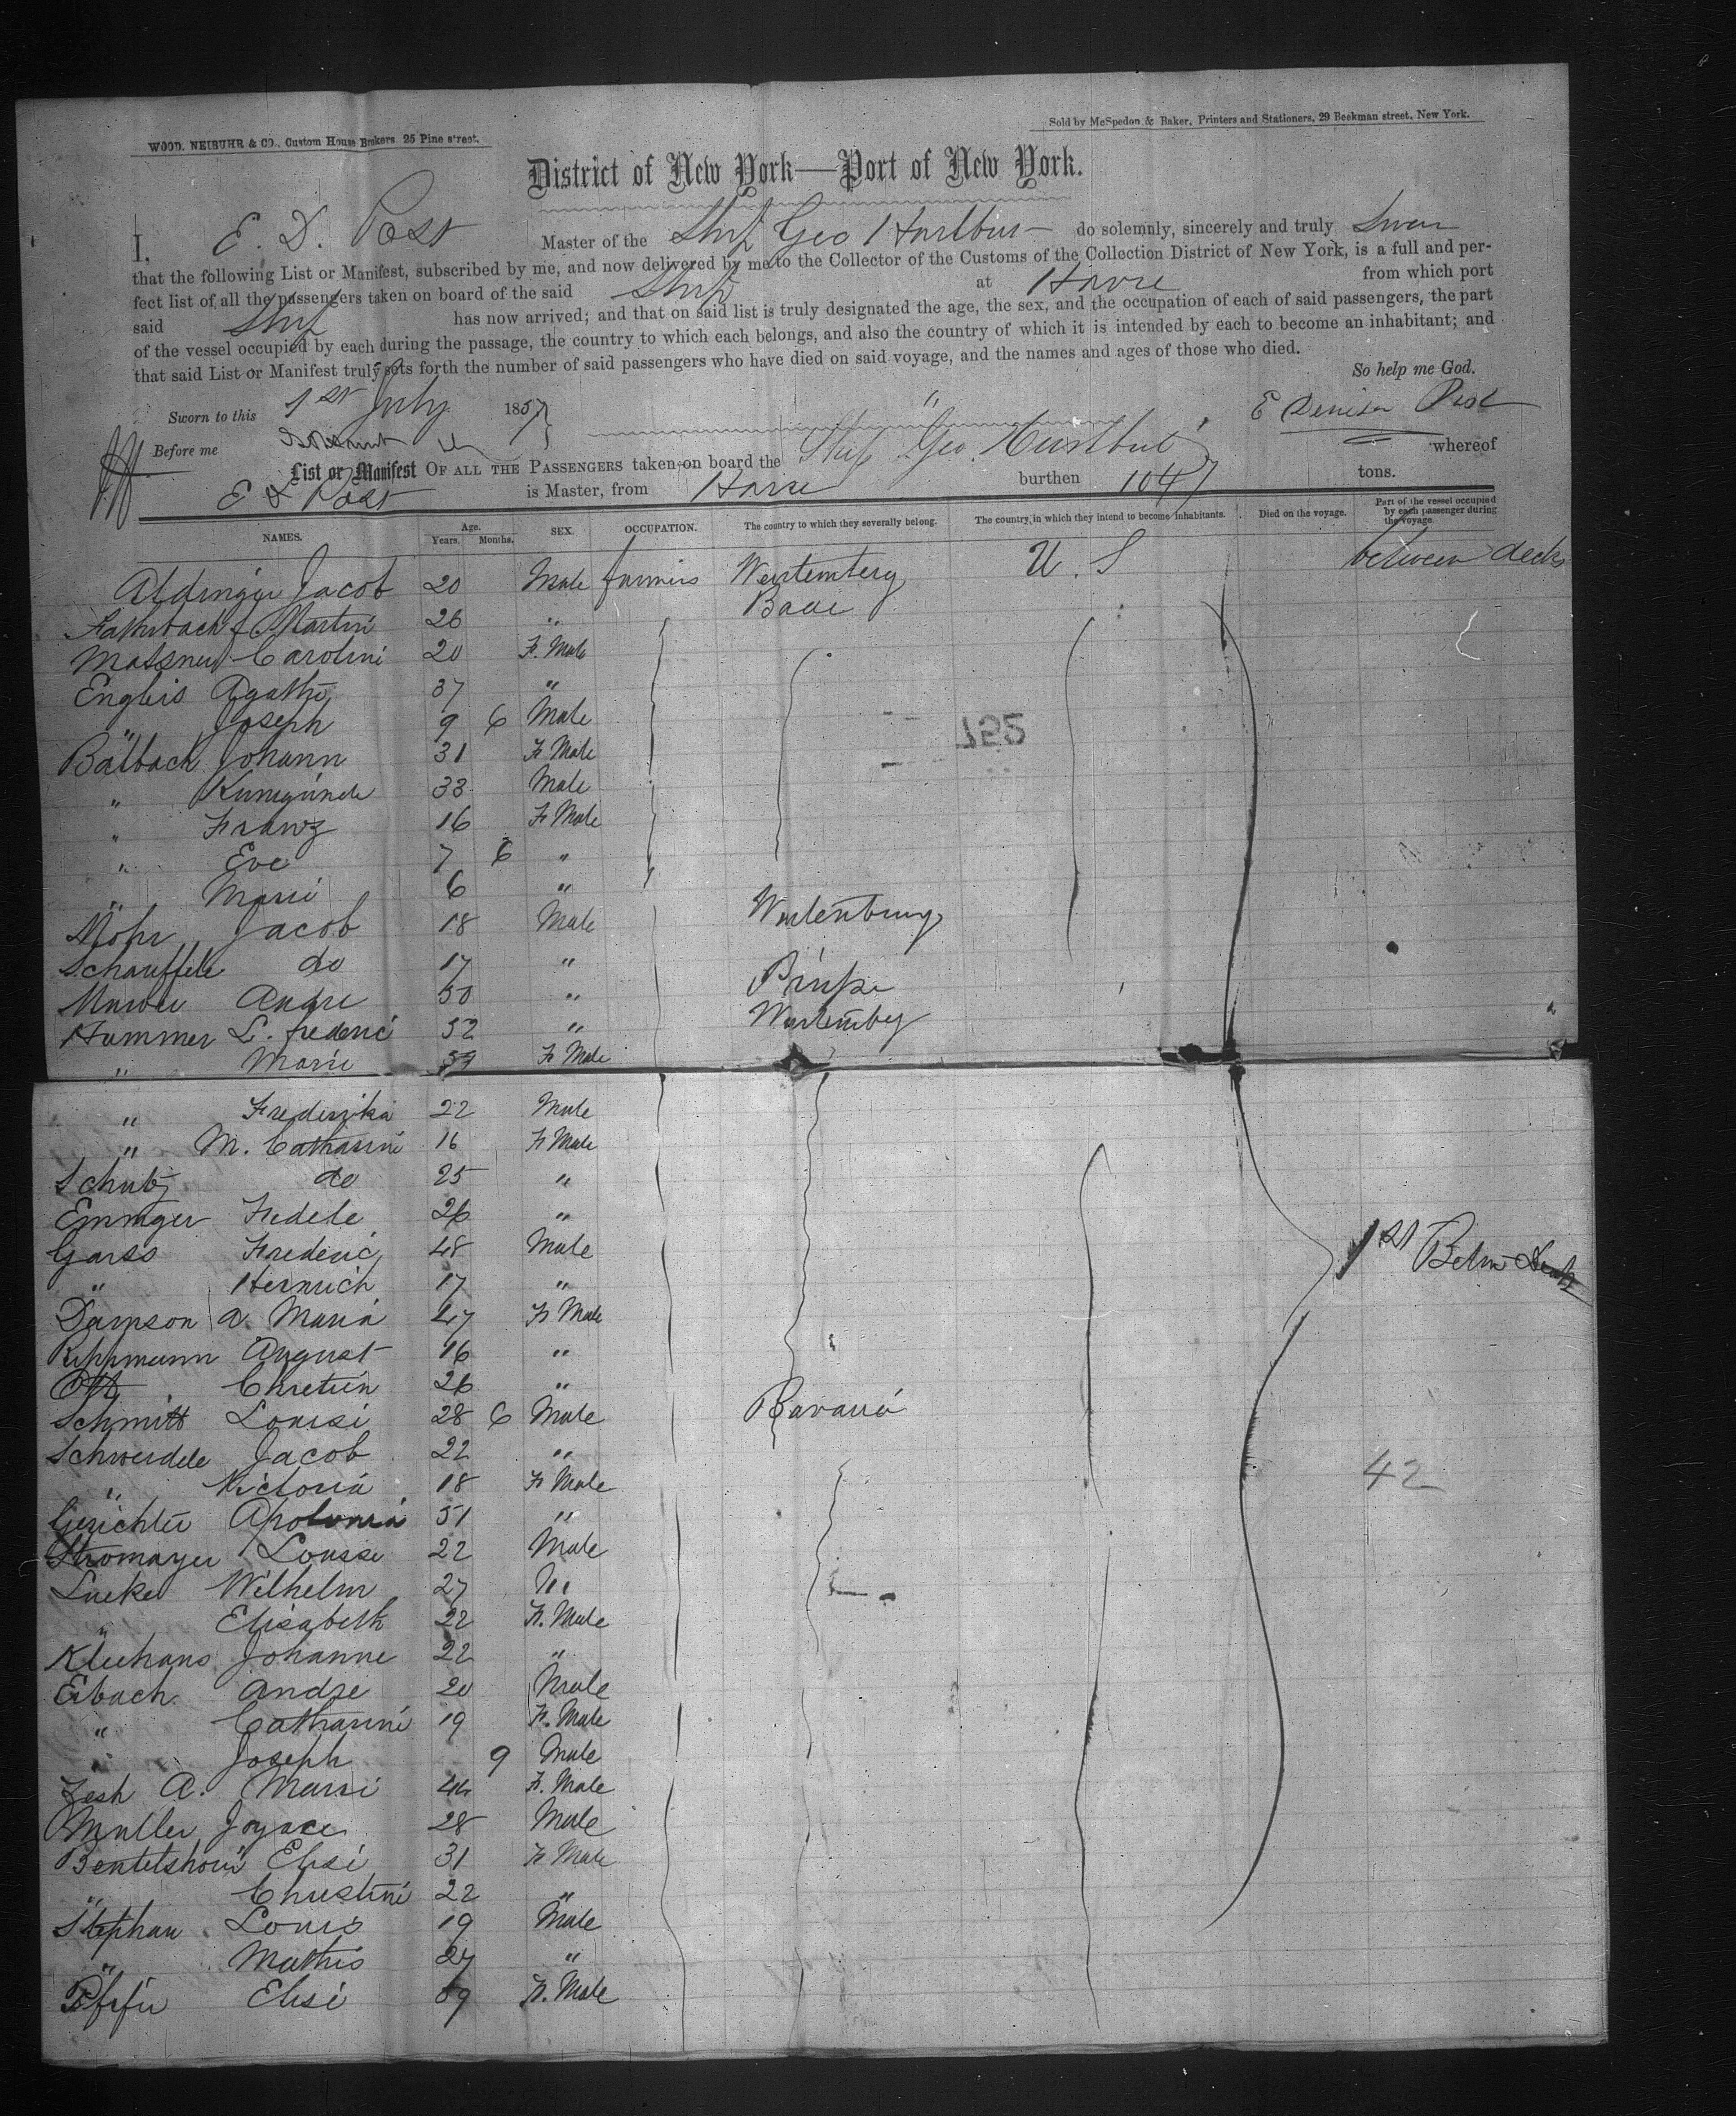 WOOD, NEIBUHR & CO., Custom House Brokers, 25 Pine street.
Sold by McSpedon & Baker, Printers and Stationers, 29 Beekman street, New York.
District of New York—Port of New York.
I, E. D. Post Master of the Ship Geo Hurlbut do solemnly, sincerely and truly Swear
that the following List or Manifest, subscribed by me, and now delivered by me to the Collector of the Customs of the Collection District of New York, is a full and per-
fect list of all the passengers taken on board of the said Ship at Havre from which port
said Ship has now arrived; and that on said list is truly designated the age, the sex, and the occupation of each of said passengers, the part
of the vessel occupied by each during the passage, the country to which each belongs, and also the country of which it is intended by each to become an inhabitant; and
that said List or Manifest truly sets forth the number of said passengers who have died on said voyage, and the names and ages of those who died.
So help me God.
Sworn to this 1st July 1857
E Denison Post
Before me
List or Manifest OF ALL THE PASSENGERS taken on board the Ship "Geo. Hurlbut" whereof
E D Post is Master, from Havre burthen 1047 tons.
NAMES. Age. Years. Months. SEX. OCCUPATION. The country to which they severally belong. The country in which they intend to become inhabitants. Died on the voyage. Part of the vessel occupied by each passenger during the voyage
Aldinger Jacob 20 Male farmers Wurtemberg U. S between decks
Martin 26 " Bade
Carolini 20 F. Male
Englis Agathe 37 "
" Joseph 9 6 Male
752
Balbach Johann 31 F Male
" Kunigunde 33 Male
" Franz 16 F Male
" Eve 7 6 "
" Marie 6 "
Mohr Jacob 18 Male Wurtemburg
Schauffele do 17 "
Andre 50 "
Hummer L. frederic 52 " Wurtemberg
" Marie 59 F Male
" Frederika 22 Male
" M. Catharine 16 F Male
Schutz do 25 "
Emmger Fidele 26 "
Garss Frederic 48 Male
" Heinrich 17 "
1st Betw Deck
Dampson A. Maria 47 F Male
Rippmann August 16 "
Ott Chretien 26 "
Schmitt Louise 28 6 Male Bavaria
Schweidele Jacob 22 "
" Victoria 18 F Male
42
Gerichter Apolonia 51 "
Stromayer Louise 22 Male
Lueke Wilhelm 27 "
" Elisabeth 22 F. Male
Kleehans Johanne 22 "
Eibach Andre 20 Male
" Catharine 19 F. Male
" Joseph 9 Male
Zesh A. Marie 44 F. Male
Muller 28 Male
Elise 31 F Male
" Christine 22 "
Stephan Louis 19 Male
" Mathis 27 "
Pfifer Elise 59 F. Male